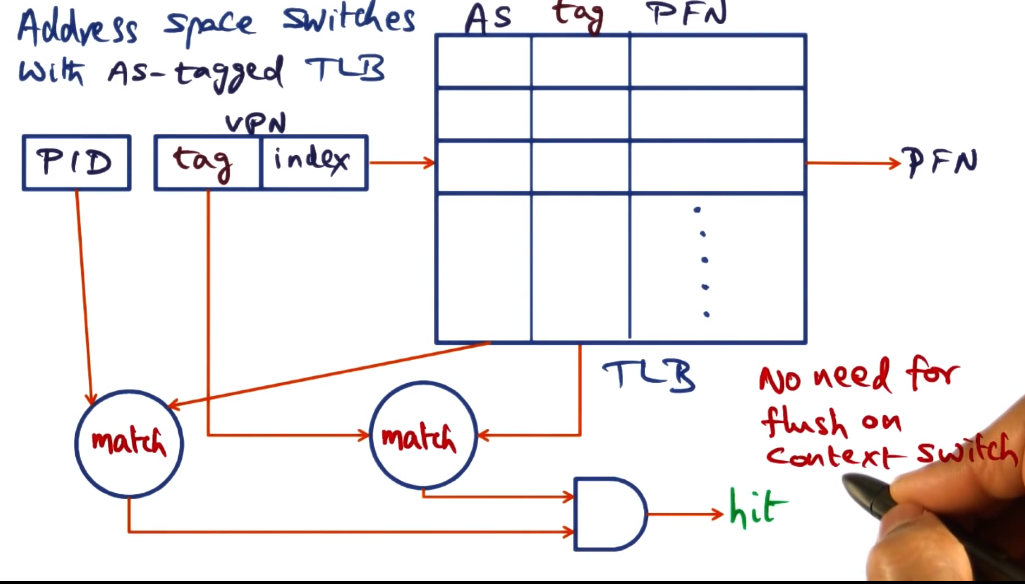 Address space switches
with AS-tagged TLB
AS tag PFN
VPN
PID tag index
PFN
TLB
match match
No need for
flush on
context switch
hit